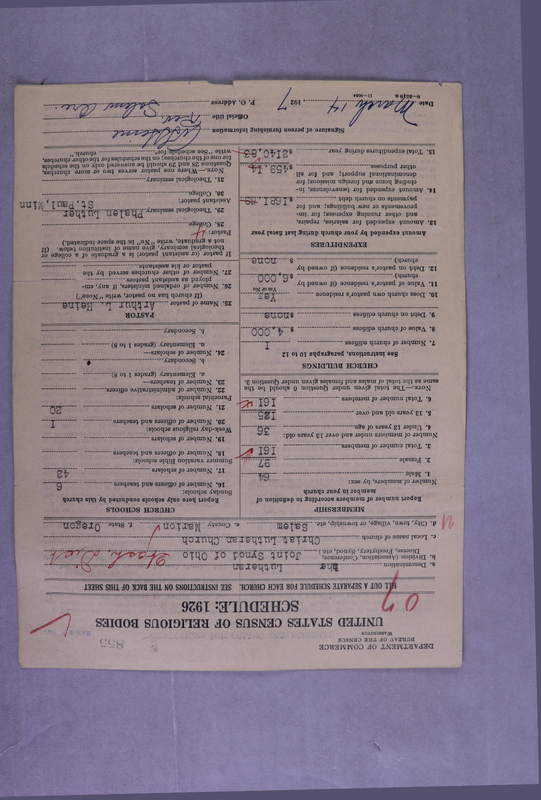 DEPARTMENT OF COMMERCE
BUREAU OF THE CENSUS
WASHINGTON
855
UNITED STATES CENSUS OF RELIGIOUS BODIES
SCHEDULE: 1926
FILL OUT A SEPARATE SCHEDULE FOR EACH CHURCH. SEE INSTRUCTIONS ON THE BACK OF THIS SHEET
a. Denomination Lutheran
b. Division (Association, Conference, Diocese, Presbytery, Synod, etc.) Joint Synod of Ohio
c. Local name of church Christ Lutheran Church
d. City, town, village, or township, etc. Salem e. County Marion f. State Oregon
MEMBERSHIP
Report number of members according to definition of member in your church
Number of members, by sex:
1. Male 64
2. Female 97
3. Total number of members 161
Number of members under and over 13 years old:
4. Under 13 years of age 36
5. 13 years old and over 125
6. Total number of members 161
NOTE.—The total given under Question 6 should be the same as the total of males and females given under Question 3.
CHURCH BUILDINGS
See instructions, paragraphs 10 to 12
7. Number of church edifices 1
8. Value of church edifices $4,000
9. Debt on church edifices $none
10. Does church own pastor's residence Yes
Yes or No
11. Value of pastor's residence (if owned by church) $6,000
12. Debt on pastor's residence (if owned by church) $none
EXPENDITURES
Amount expended by your church during last fiscal year
13. Amount expended for salaries, repairs, and other running expenses; for improvements or new building; and for payments on church debt $1681.69
14. Amount expended for benevolences, including home and foreign missions; for denominational support; and for all other purposes 459.14
15. Total expenditures during year $2140.83
CHURCH SCHOOLS
Report here only schools conducted by this church
Sunday schools:
16. Number of officers and teachers 6
17. Number of scholars 42
Summer vacation Bible schools:
18. Number of officers and teachers
19. Number of scholars
Week-day religious schools:
20. Number of officers and teachers 1
21. Number of scholars 20
Parochial schools:
22. Number of administrative officers
23. Number of teachers—
a. Elementary (grades 1 to 8)
b. Secondary
24. Number of scholars—
a. Elementary (grades 1 to 8)
b. Secondary
PASTOR
25. Name of pastor Arthur L. Heine
(If church has no pastor, write "None")
26. Number of ordained ministers, if any, employed as assistant pastors
27. Number of other churches served by the pastor or his assistants
If pastor (or assistant pastor) is a graduate of a college or theological seminary, give name of institution below. (If not a graduate, write "No" in the space indicated.)
Pastor:
28. College
29. Theological seminary Phalen Luther St.Paul,Minn
Assistant pastor:
30. College
31. Theological seminary
NOTE.—Where one pastor serves two or more churches, Questions 28 and 29 should be answered only on the schedule for one of the churches; on the schedules for the other churches, write "See schedule for church."
Signature of person furnishing information
Official title Rev.
Date March 14, 1927 P. O. Address Salem Ore.